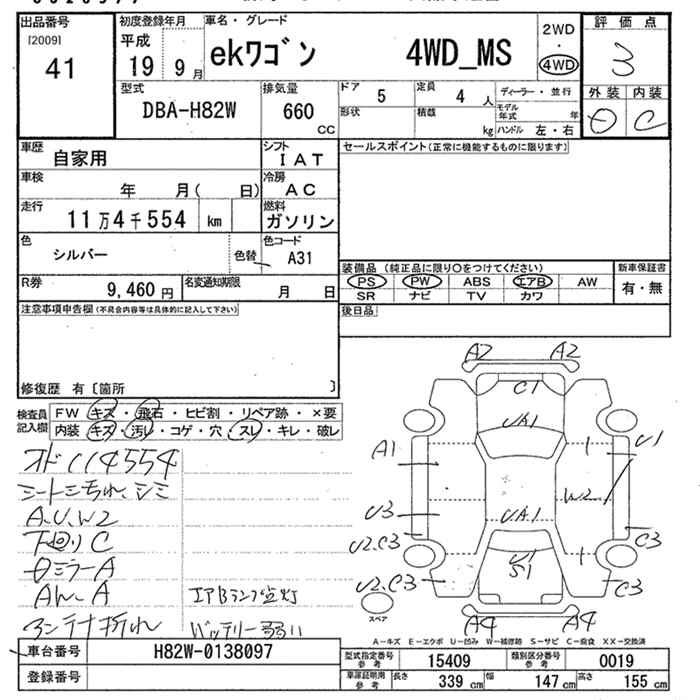 出品番号
[2009]
41
初度登録年月
平成
19 9 月
車名・グレード
ekワゴン 4WD_MS
2WD
4WD
評価点
3
外装 内装
C
型式
DBA-H82W
排気量
660 CC
ドア 5
定員 4 人
形状
積載 kg
ディーラー・並行
モデル年式 年
ハンドル 左・右
車歴
自家用
シフト
IAT
車検
年 月( 日)
冷房
AC
走行
11万4千554 km
燃料
ガソリン
色
シルバー
色替
色コード
A31
R券
9,460 円
名変通知期限
月 日
セールスポイント(正常に機能するものに限ります)
装備品 (純正品に限り○をつけてください)
新車保証書
PS PW ABS エアB AW
SR ナビ TV カワ
有・無
後日品
注意事項申告欄(不具合内容等は具体的に記入して下さい)
修復歴 有〔箇所 〕
検査員記入欄
FW キズ・飛石・ヒビ割・リペア跡・×要
内装 キズ・汚レ・コゲ・穴・スレ・キレ・破レ
オド114554
シートニちれ、シミ
A.U.W2
下回りC
ミラーA
A
アンテナ折れ
エアBランプ点灯
バッテリー弱い
A2 A2
C1
UA1
A1
U1
W2
U3
UA1
U2.C3
C3
U1
S1
U2.C3
C3
A4 A4
スペア
A-キズ E-エクボ U-凹み W-補修跡 S-サビ C-腐食 XX-交換済
車台番号
H82W-0138097
登録番号
型式指定番号 参考
15409
類別区分番号 参考
0019
車庫証明用 参考
長さ 339 cm
幅 147 cm
高さ 155 cm